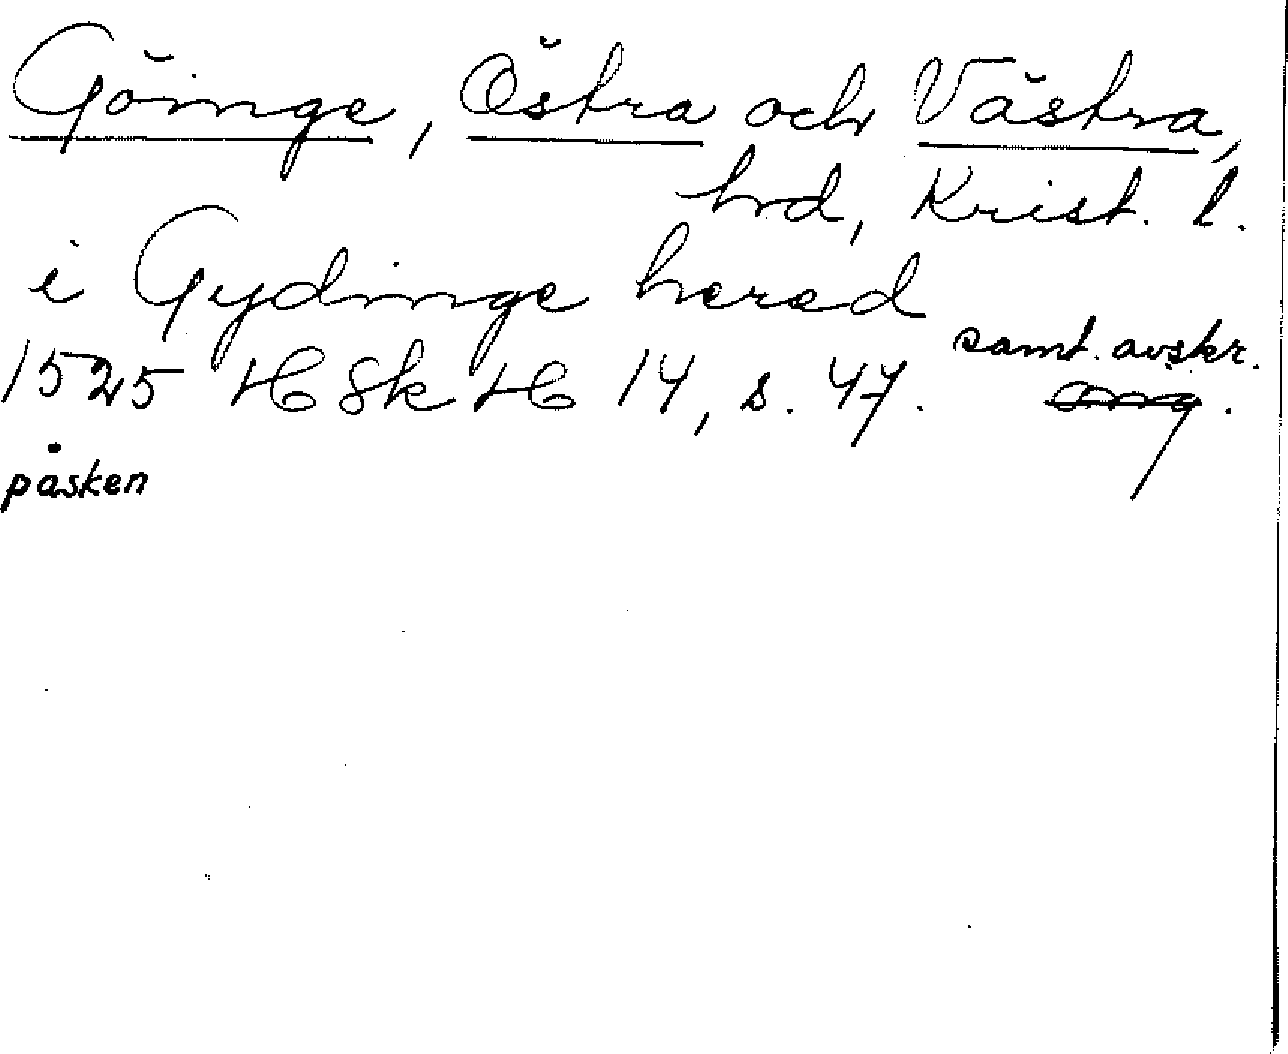 Göinge, Östra och Västra,
hrd, Krist. l.
i Gydinge herad
samt. avskr.
1525 HSkH 14, s. 47. orig.
påsken